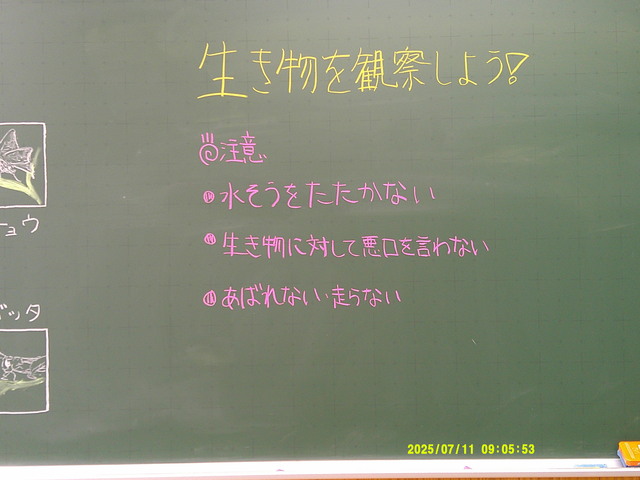 生き物を観察しよう!
注意
水そうをたたかない
生き物に対して悪口を言わない
あばれない・走らない
ョウ
バッタ
2025/07/11 09:05:53